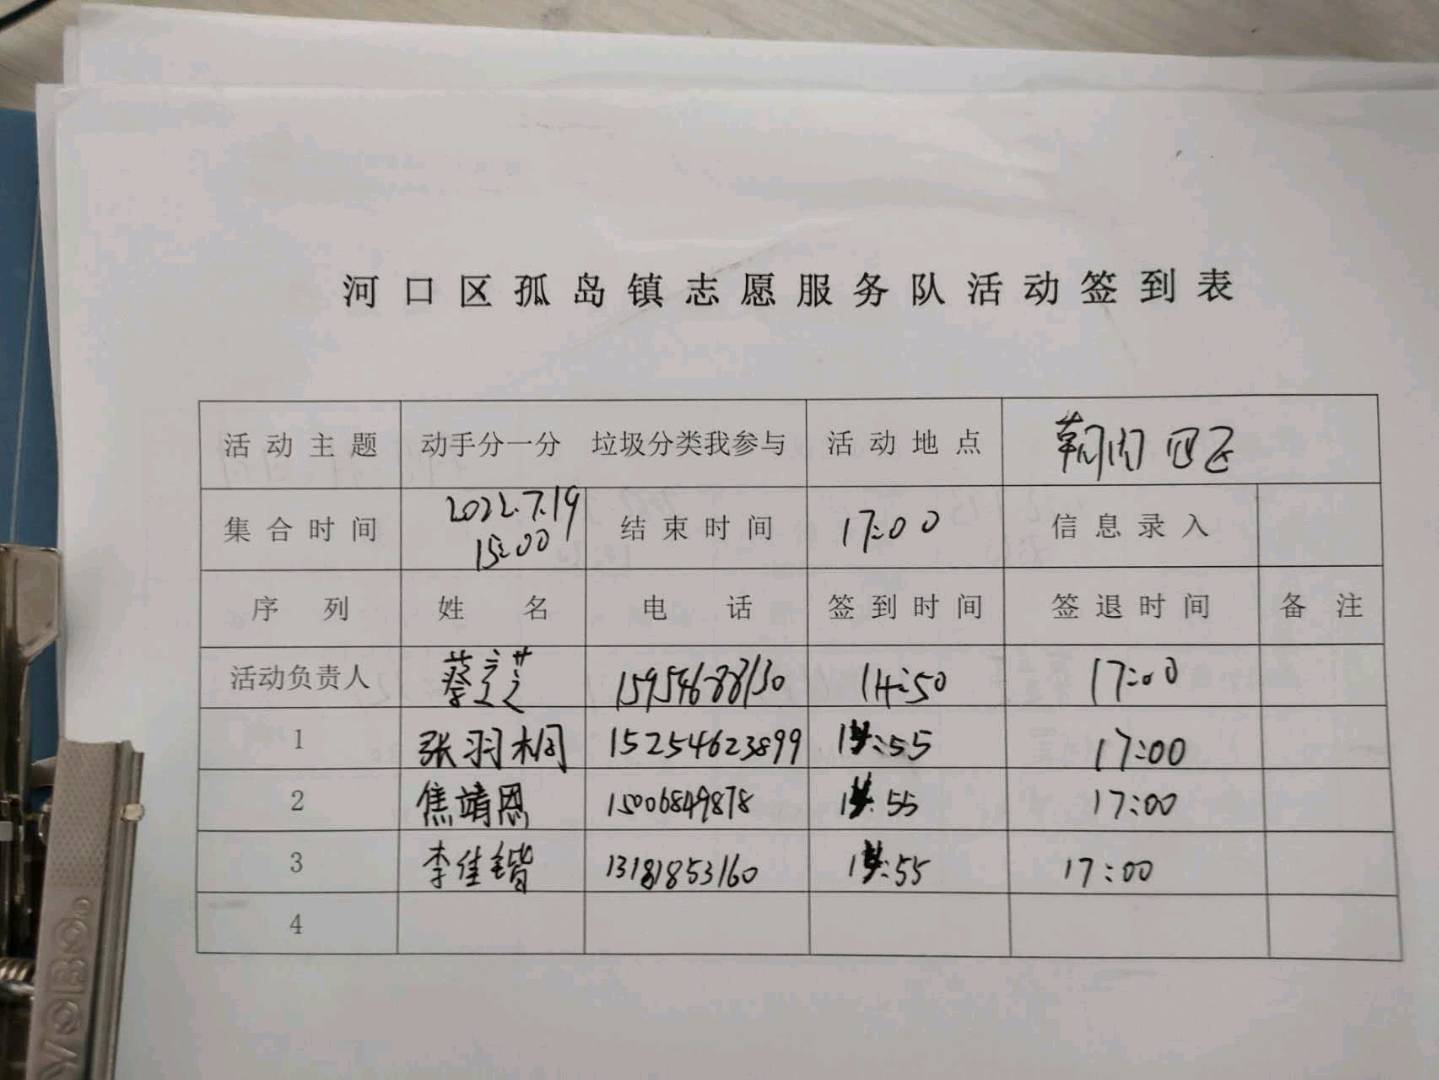 河口区孤岛镇志愿服务队活动签到表
活动主题 动手分一分 垃圾分类我参与 活动地点 四区
集合时间 2022.7.19 15:00 结束时间 17:00 信息录入
序列 姓名 电话 签到时间 签退时间 备注
活动负责人 蔡芝芝 15954688130 14:50 17:00
1 张羽桐 15254623899 14:55 17:00
2 焦靖恩 15006849878 14:55 17:00
3 李佳锴 13181853160 14:55 17:00
4